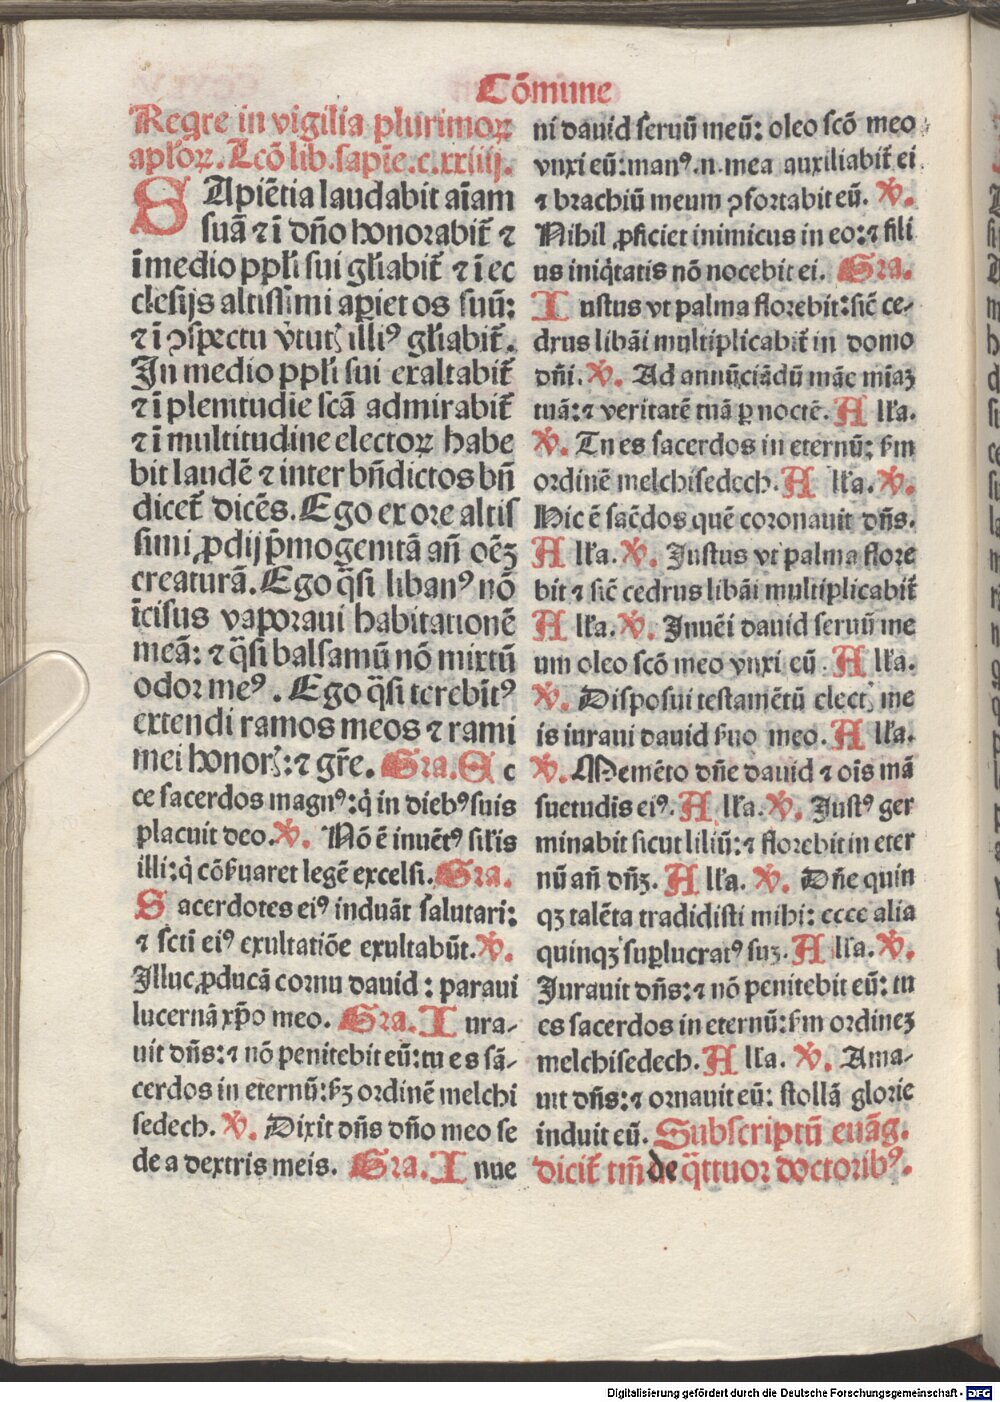 Cōmune
Reqre in vigilia plurimoꝝ
apl'oꝝ. Lcō lib. sapiē. c. xxiiij.
SApiētia laudabit aīam
suā ⁊ ī dn̄o honorabit̄ ⁊
īmedio ppl'i sui gl'iabit̄ ⁊ ī ec
clesijs altissimi aꝑiet os suū:
⁊ ī ꝯspectu v̓tutꝭ illiꝰ gl'iabit̄.
In medio ppl'i sui exaltabit̄
⁊ ī plenitudīe scā admirabit̄
⁊ ī multitudine electoꝝ habe
bit laudē ⁊ inter bn̄dictos bn̄
dicet̄ dicēs. Ego ex ore altis
simi ꝓdij p̄mogenitā an̄ oēꝫ
creaturā. Ego q̄si libanꝰ nō
īcisus vaporaui habitationē
meā: ⁊ q̄si balsamū nō mixtū
odor meꝰ. Ego q̄si terebīt̄ꝰ
extendi ramos meos ⁊ rami
mei honorꝭ: ⁊ gr̄e. Gra. E c
ce sacerdos magnꝰ: q̇ in diebꝰ suis
placuit deo. ℣. Nō ē inuētꝰ sil'is
illi: q̇ cōẜuaret legē excelsi. Gra.
S acerdotes eiꝰ induāt salutari:
⁊ sctī eiꝰ exultatiōe exultabūt. ℣.
Illuc ꝓducā cornu dauid: paraui
lucernā xp̄o meo. Gra. I ura-
uit dn̄s: ⁊ nō penitebit eū: tu es sā-
cerdos in eternū: ẜꝫ ordinē melchi
sedech. ℣. Dixit dn̄s dn̄o meo se
de a dextris meis. Gra. I nue
ni dauid seruū meū: oleo scō meo
vnxi eū: manꝰ .n. mea auxiliabit̄ ei
⁊ brachiū meum ꝯfortabit eū. ℣.
Nihil ꝓficiet inimicus in eo: ⁊ fili
us iniq̇tatis nō nocebit ei. Gra.
I ustus vt palma florebit: sic̄ ce-
drus libāi multiplicabit̄ in domo
dn̄i. ℣. Ad annūciādū māe mīaꝫ
tuā: ⁊ veritatē tuā ꝑ noctē. A ll'a.
℣. Tu es sacerdos in eternū: ẜm
ordinē melchisedech. A ll'a. ℣.
Hic ē sac̄dos quē coronauit dn̄s.
A ll'a. ℣. Justus vt palma flore
bit ⁊ sic̄ cedrus libāi multiplicabit̄
A ll'a. ℣. Inuēi dauid seruū me
um oleo scō meo vnxi eū. A ll'a.
℣. Disposui testamētū electꝭ me
is iuraui dauid ẜuo meo. A ll'a.
℣. Memēto dn̄e dauid ⁊ oīs mā
suetudis eiꝰ. A ll'a. ℣. Justꝰ ger
minabit sicut liliū: ⁊ florebit in eter
nū an̄ dn̄ꝫ. A ll'a. ℣. Dn̄e quin
qꝫ talēta tradidisti mihi: ecce alia
quinqꝫ suꝑlucratꝰ suꝫ. A ll'a. ℣.
Jurauit dn̄s: ⁊ nō penitebit eū: tu
es sacerdos in eternū: ẜm ordineꝫ
melchisedech. A ll'a. ℣. Ama-
uit dn̄s: ⁊ ornauit eū: stollā glorie
induit eū. Subscriptū euāg.
dicit̄ tm̄ de q̄ttuor doctoribꝰ.
Digitalisierung gefördert durch die Deutsche Forschungsgemeinschaft - DFG